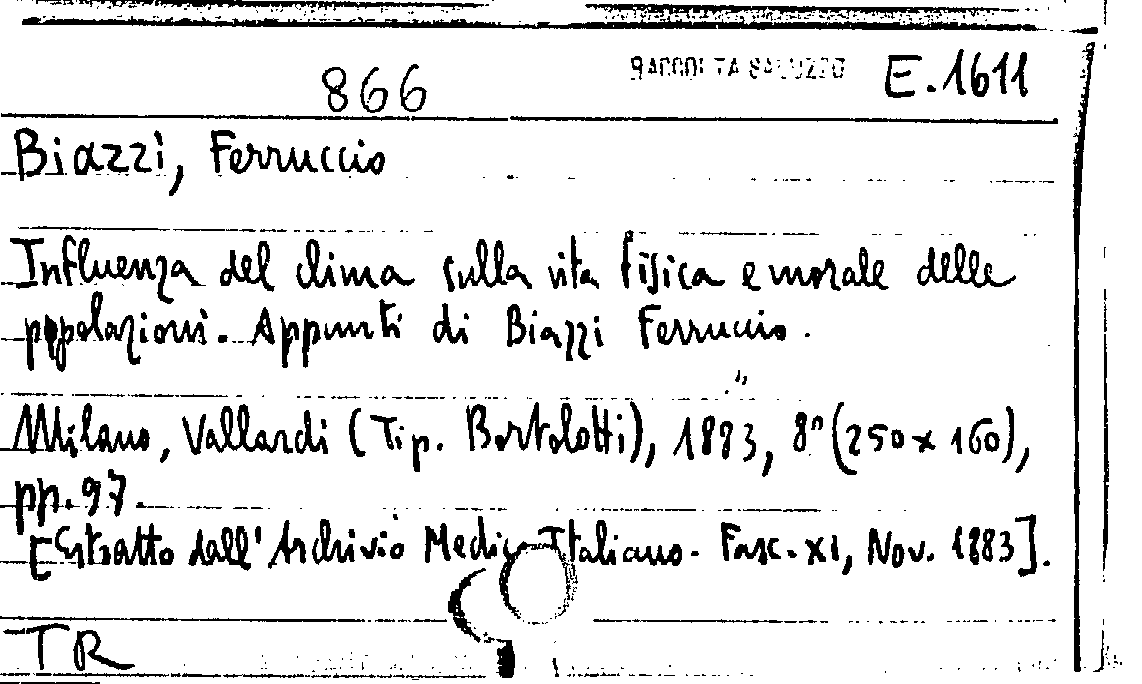 866 RACCOLTA SALUZZO E.1611
Biazzi, Ferruccio
Influenza del clima sulla vita fisica e morale delle
popolazioni. Appunti di Biazzi Ferruccio.
Milano, Vallardi (Tip. Bortolotti), 1883, 8° (250 x 160),
pp. 97.
[Estratto dall'Archivio Medico Italiano. Fasc. XI, Nov. 1883].
TR